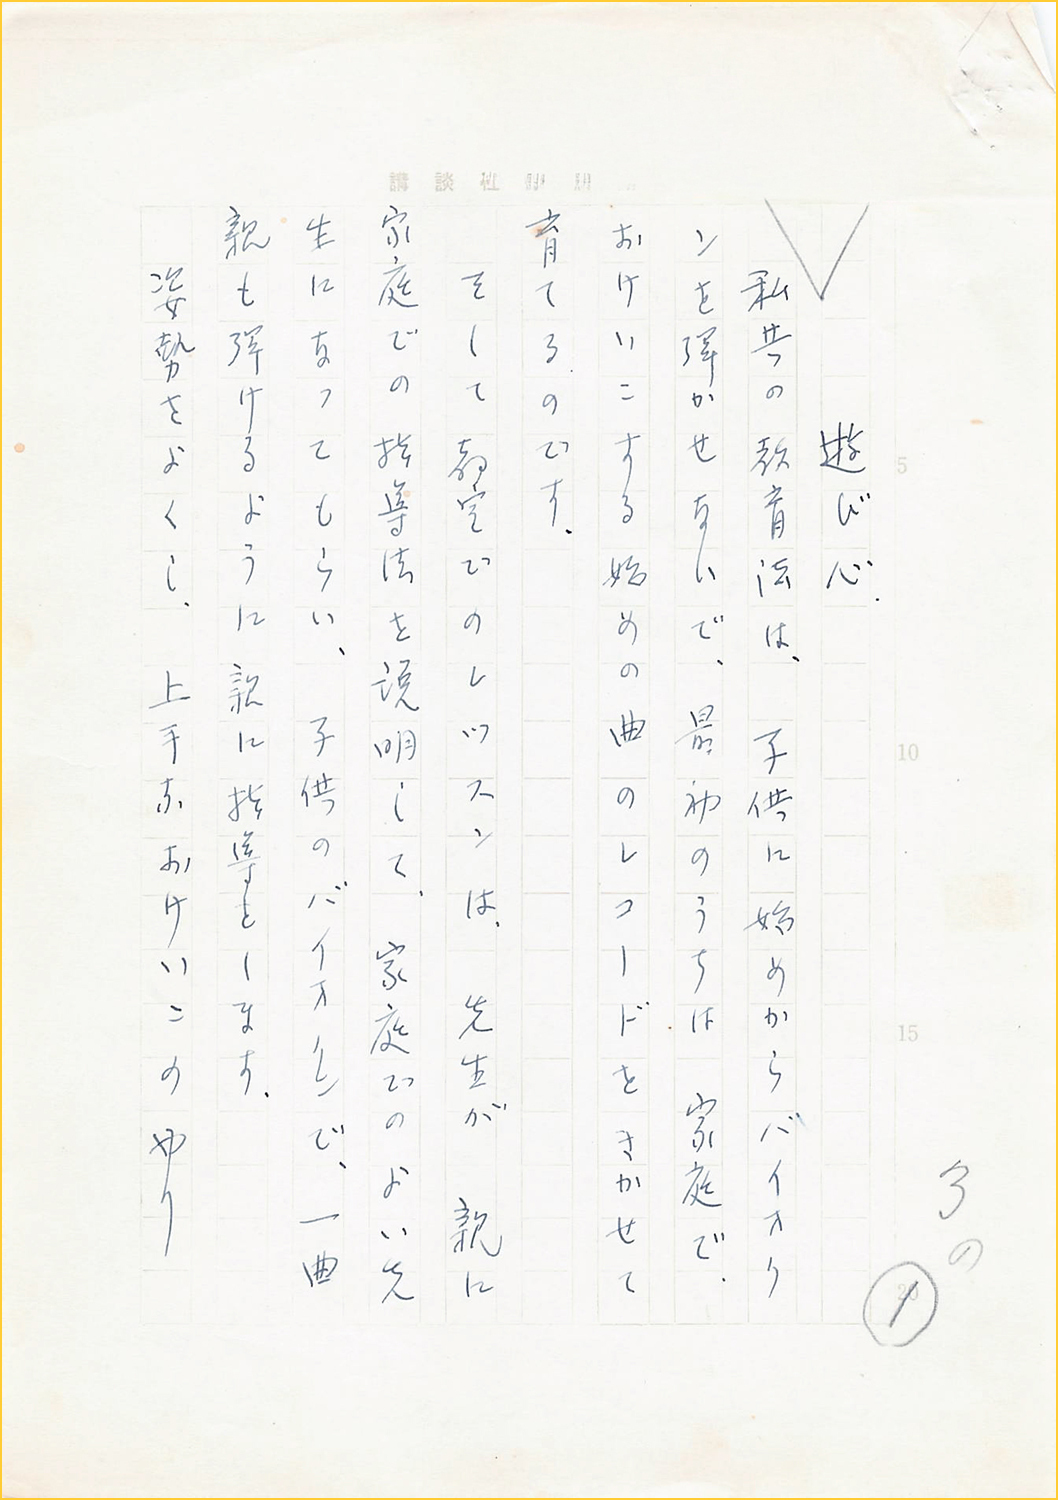 遊び心.
私共の教育法は、子供に始めからバイオリ
ンを弾かせないで、最初のうちは 家庭で、
おけいこする始めの曲のレコードをきかせて
育てるのです.
そして教室でのレッスンは、先生が 親に
家庭での指導法を説明して、家庭でのよい先
生になってもらい、子供のバイオリンで、一曲
親も弾けるように親に指導をします.
姿勢をよくし、上手なおけいこのやり
5
10
15
20
3の
1
講談社